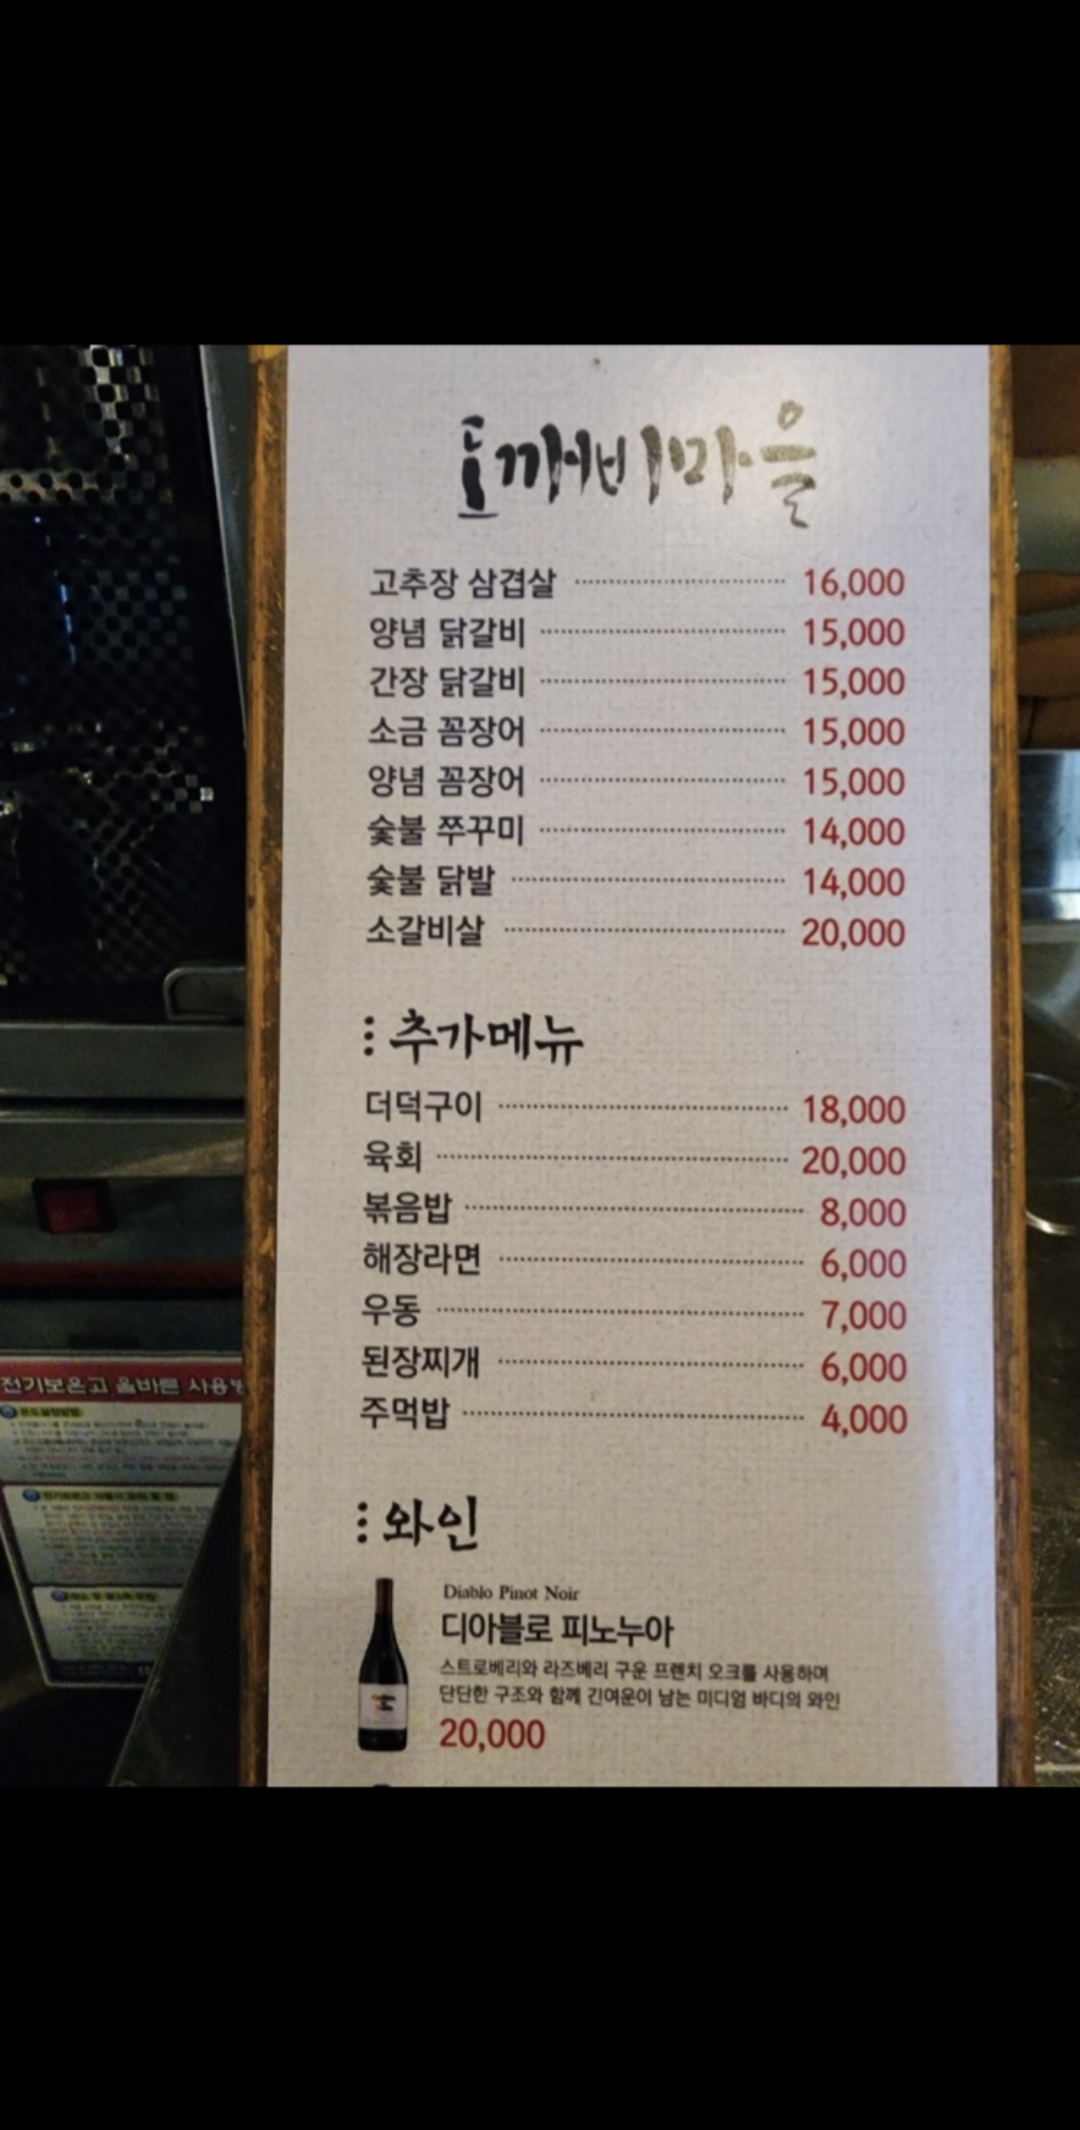 도깨비마을
고추장 삼겹살 16,000
양념 닭갈비 15,000
간장 닭갈비 15,000
소금 꼼장어 15,000
양념 꼼장어 15,000
숯불 쭈꾸미 14,000
숯불 닭발 14,000
소갈비살 20,000
추가메뉴
더덕구이 18,000
육회 20,000
볶음밥 8,000
해장라면 6,000
우동 7,000
된장찌개 6,000
주먹밥 4,000
와인
Diablo Pinot Noir
디아블로 피노누아
스트로베리와 라즈베리 구운 프렌치 오크를 사용하며
단단한 구조와 함께 긴여운이 남는 미디엄 바디의 와인
20,000
전기보온고 올바른 사용